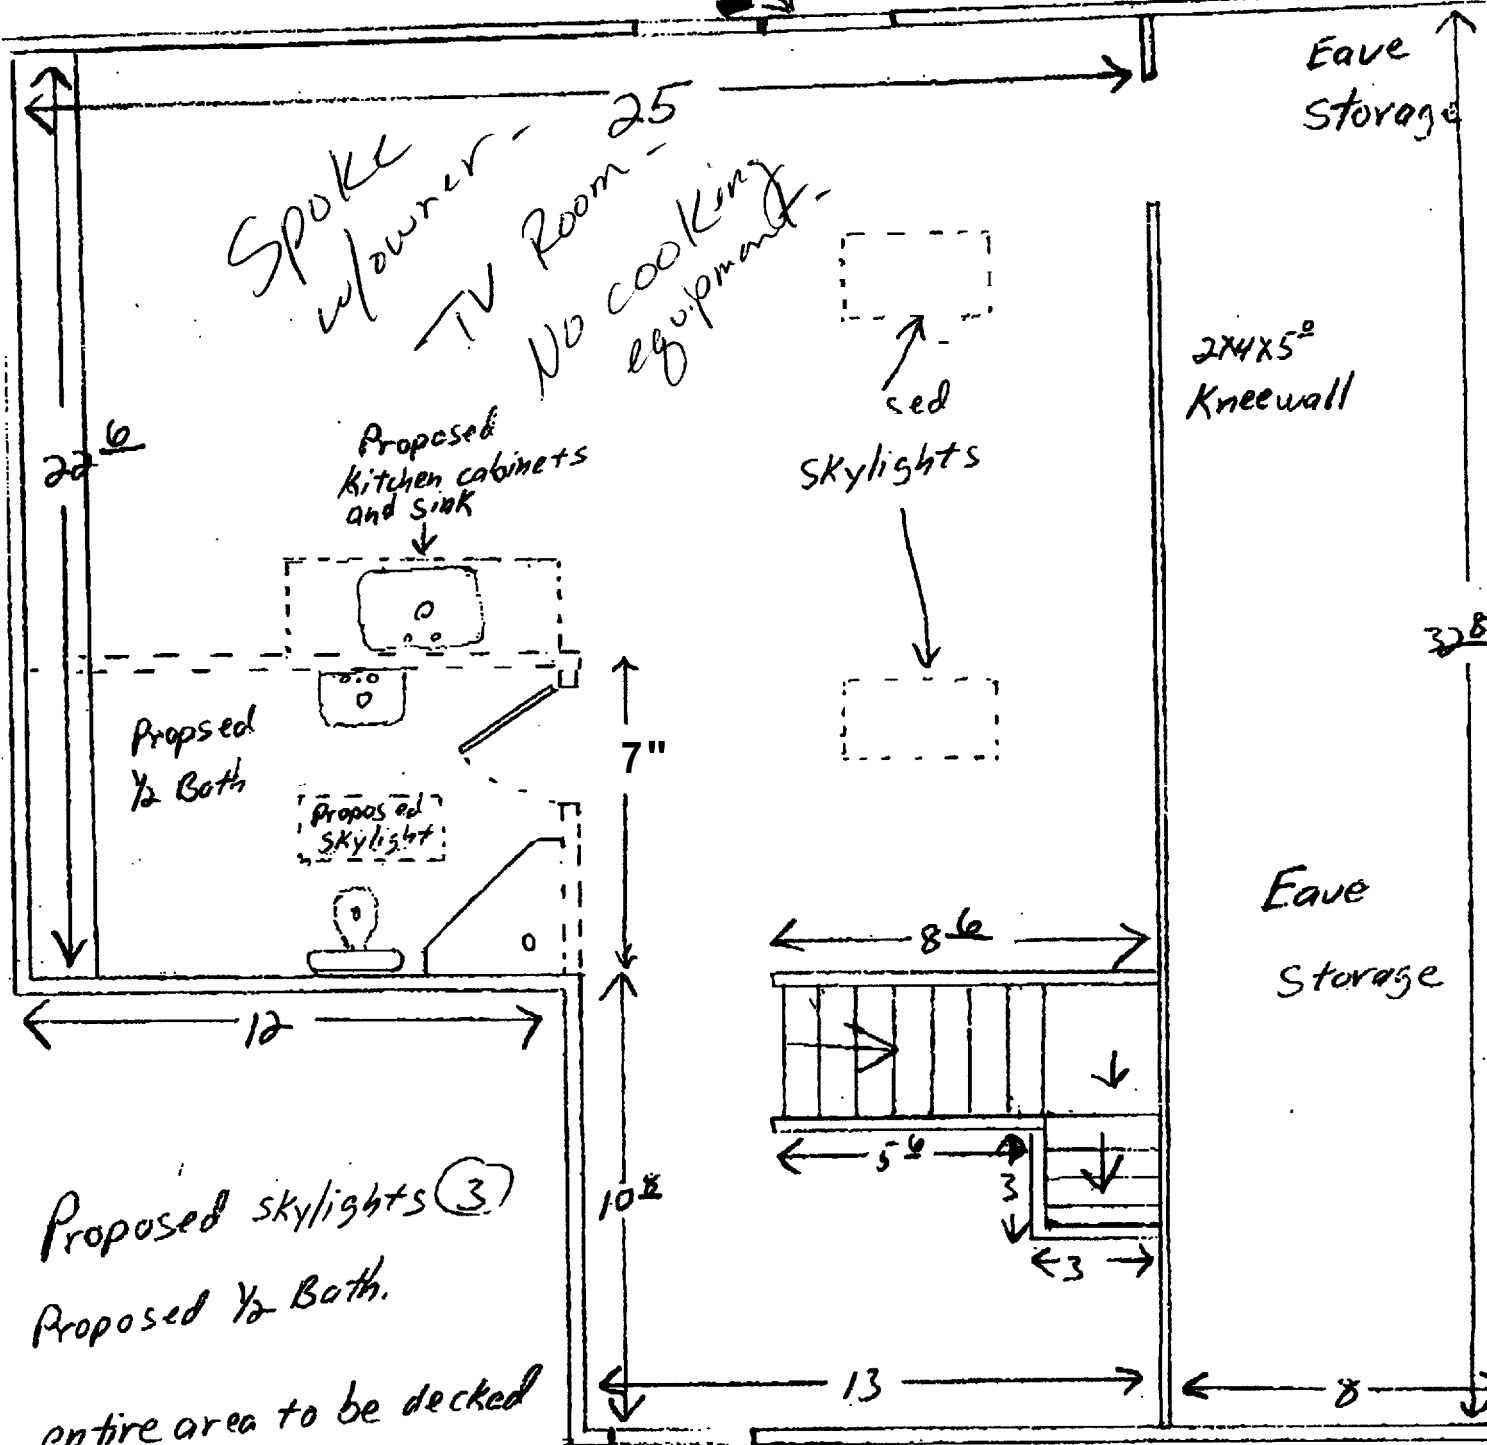 Eave
Storage
25
Spoke
w/owner -
TV Room -
No cooking
equipment -
2x4x5⁰
Kneewall
sed
Skylights
22 6
Proposed
Kitchen cabinets
and sink
32 8
7"
Propsed
1/2 Bath
Proposed
Skylight
Eave
Storage
8 6
12
5 6
3
3
10 8
Proposed skylights 3
Proposed 1/2 Bath.
13
8
entire area to be decked